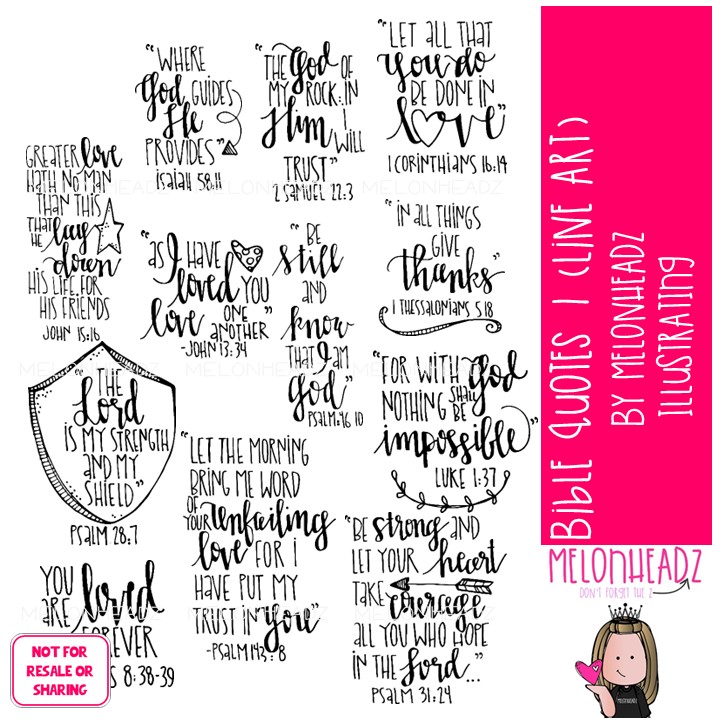 "WHERE
God GUIDES
He
PROVIDES"
ISAIAH 58:11
"THE God OF
MY ROCK: IN
Him I
WILL
TRUST"
2 SAMUEL 22:3
"LET ALL THAT
you do
BE DONE IN
love"
1 CORINTHIANS 16:14
GREATER love
HATH NO MAN
THAN THIS
THAT HE lay
down
HIS LIFE FOR
HIS FRIENDS
JOHN 15:16
"AS I HAVE
loved YOU
love ONE ANOTHER"
-JOHN 13:34
"BE
still
AND
know
THAT I AM
God"
PSALM 46 10
"IN ALL THINGS
GIVE
thanks"
1 THESSALONIANS 5:18
"THE
Lord
IS MY STRENGTH
AND MY
SHIELD"
PSALM 28:7
"FOR WITH God
NOTHING SHALL BE
impossible"
LUKE 1:37
"LET THE MORNING
BRING ME WORD
OF YOUR unfailing
love FOR I
HAVE PUT MY
TRUST IN you"
-PSALM 143:8
"BE strong AND
LET YOUR heart
TAKE courage
ALL YOU WHO HOPE
IN THE Lord..."
PSALM 31:24
YOU ARE loved
FOREVER
8:38-39
NOT FOR
RESALE OR
SHARING
BIBLE QUOTES 1 (LINE ART)
BY MELONHEADZ
ILLUSTRATING
MELONHEADZ
DON'T FORGET THE Z
MELONHEADZ
MELONHEADZ
MELONHEADZ
MELONHEADZ